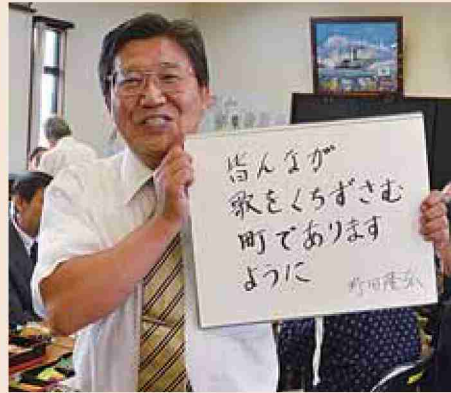 皆んなが
歌をくちずさむ
町であります
ように